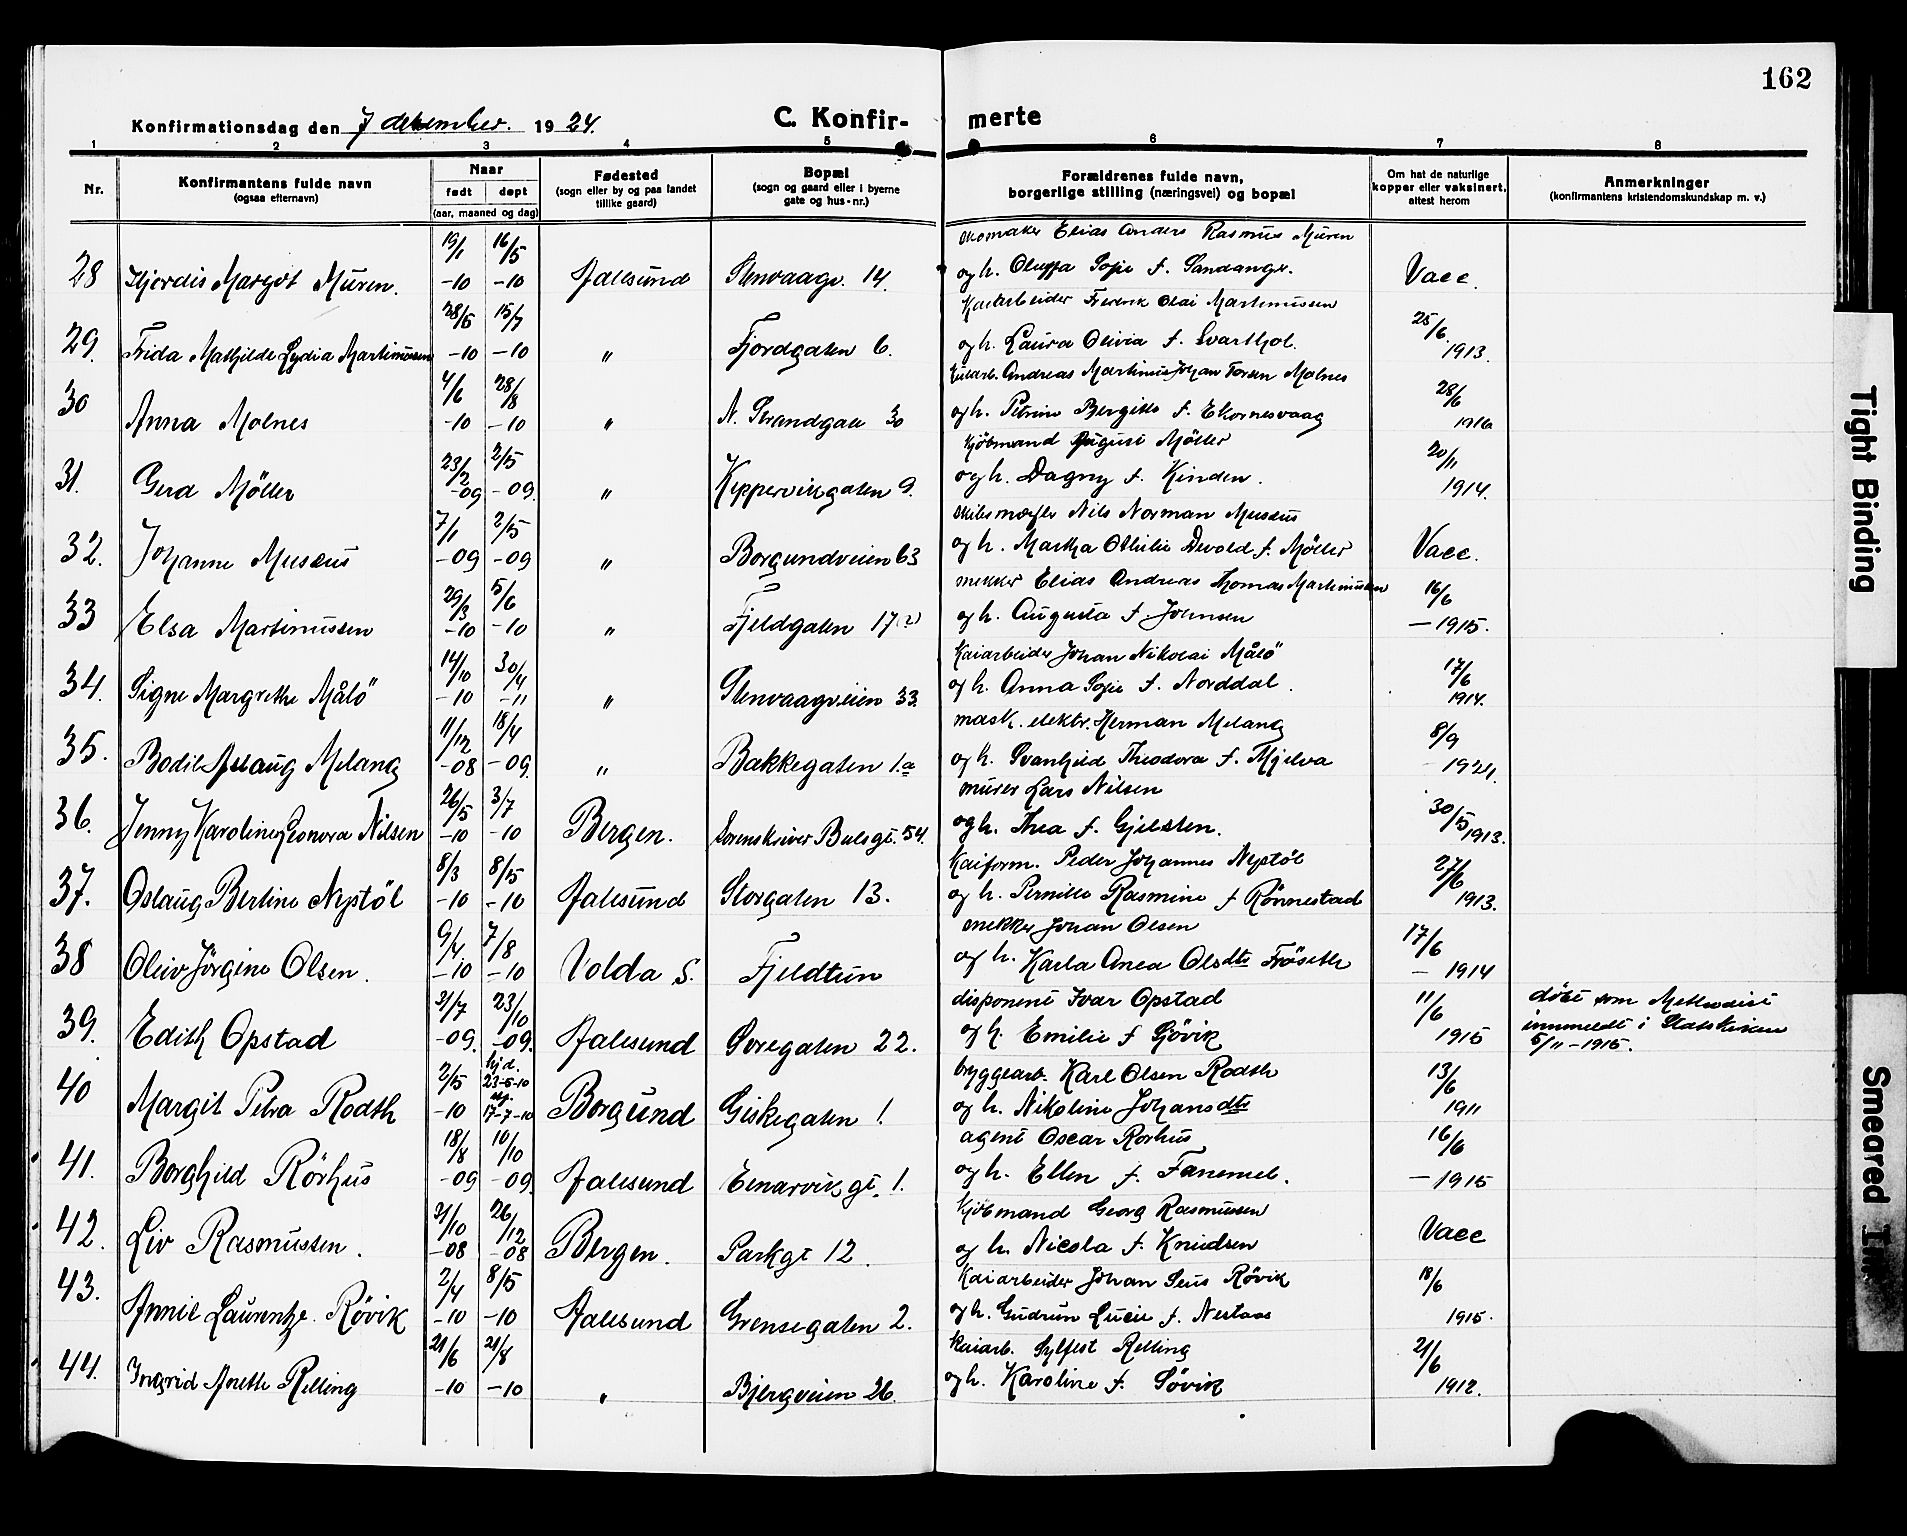 162
Konfirmationsdag den 7 desember. 1924.
C. Konfir- merte
1 2 3 4 5 6 7 8
Nr.
Konfirmantens fulde navn
(ogsaa efternavn)
Naar
født døpt
(aar, maaned og dag)
Fødested
(sogn eller by og paa landet
tillike gaard)
Bopæl
(sogn og gaard eller i byerne
gate og hus-nr.)
Forældrenes fulde navn,
borgerlige stilling (næringsvei) og bopæl
Om hat de naturlige
kopper eller vaksinert,
attest herom
Anmerkninger
(konfirmantens kristendomskundskap m. v.)
19/1 16/5 skomaker Elias Anders Rasmus Muren
28 Hjørdis Margot Muren. -10 -10 Aalesund Stenvaagv. 14. og h. Oluffa Sofie f. Sandanger. Vacc.
28/5 15/7 Kaiarbeider Fredrik Olai Martinussen 25/6
29. Frida Mathilde Lydia Martinussen -10 -10 " Fjordgaten 6. og h. Laura Olivia f. Svarthol. 1913.
4/6 28/8 Andreas Martinus Johan Molnes 28/6
30 Anna Molnes -10 -10 " N. Strandgate 30 og h. Petrine Bergitte f. Ekornesvaag 1916
23/2 2/5 Kjöbmand August Möller 20/11
31. Gerd Möller -09 -09. " Kippervikgaten 9. og h. Dagny f. Kinden. 1914.
7/1 2/5 skibsmægler Nils Norman Musæus
32. Johanne Musæus -09 -09 " Borgundveien 63 og h. Martha Othilie Devold f. Möller Vacc.
29/3 5/6 snekker Elias Andreas Thomas Martinussen 16/6
33 Elsa Martinussen -10 -10 " Fjeldgaten 17(2) og h. Augusta f. Johnsen -1915.
14/10 30/4 Kaiarbeider Johan Nikolai Målö 17/6
34. Signe Margrethe Målö -10 -11 " Stenvaagveien 33. og h. Anna Sofie f. Norddal. 1914.
11/12 18/4 mask. elektr. Herman Melang 8/9
35. Bodil Aslaug Melang -08 -09. " Bakkegaten 1.a og h. Svanhild Theodora f. Mjelva 1921.
26/5 3/7 murer Lars Nilsen 30/5
36. Jenny Karoline Leonora Nilsen -10 -10 Bergen. Sorenskriver Bulsgt. 54. og h. Thea f. Gjelsten. 1913.
8/3 8/5 Kaiform. Peder Johannes Nystöl 27/6
37. Oslaug Berline Nystöl -10 -10 Aalesund Storgaten 13. og h. Pernille Rasmine f Rönnestad 1913.
9/4 7/8 snekker Johan Olsen 17/6
38 Oliv Jörgine Olsen. -10 -10 Volda S. Fjeldtun og h. Karla Anea Olsdtr Fröseth - 1914
21/7 23/10 disponent Ivar Opstad 11/6 döbt som Methodist
39. Edith Opstad -09. -09. Aalesund Storegaten 22. og h. Emilie f Gjövik 1915 innmeldt i Statskirken
5/11-1915.
2/5 hjd. 23-5-10 bryggearb. Karl Olsen Rodth 13/6
40 Margit Petra Rodth -10 17-7-10 Borgund Giskegaten 1. og h. Nikoline Johansdtr 1911
18/8 10/10 agent Oscar Rorhus 16/6
41. Borghild Rörhus -09 -09. Aalesund Einarvikgt. 1. og h. Ellen f. Fanemel. -1915
31/10 26/12 Kjöbmand Georg Rasmussen
42. Liv Rasmussen. -08 -08 Bergen. Parkgt 12. og h. Nicola f. Knudsen Vacc
2/4 8/5 Kaiarbeider Johan Rövik 18/6
43. Annie Laurentze Rövik -10 -10 Aalesund Grensegaten 2. og h. Gudrun Lucie f. Nestaas 1915.
21/6 21/8 Kaiarb. Sylfest Relling 21/6
44. Ingrid Anette Relling -10 -10 " Bjergveien 26. og h. Karoline f. Sövik 1912.
Tight Binding
Smeared Ink